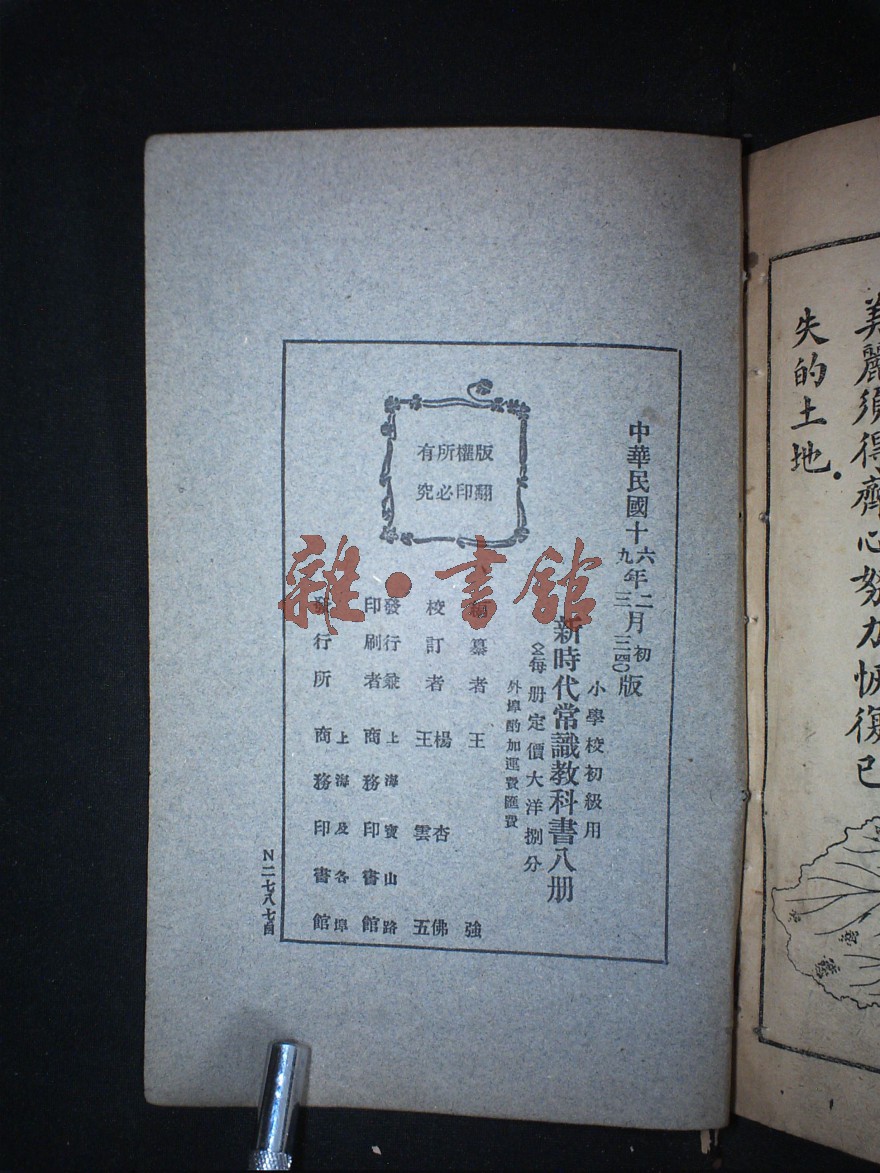 美麗須得齊心努力恢復已
失的土地。
中華民國十六年二月初版
九年三月三四〇版
小學校初級用
新時代常識教科書八册
每册定價大洋捌分
外埠酌加運費匯費
編纂者 王強
校訂者 楊杏佛
王雲五
發行兼印刷者 上海寶山路
商務印書館
發行所 上海及各埠
商務印書館
版權所有
翻印必究
N二七八七
雜·書館